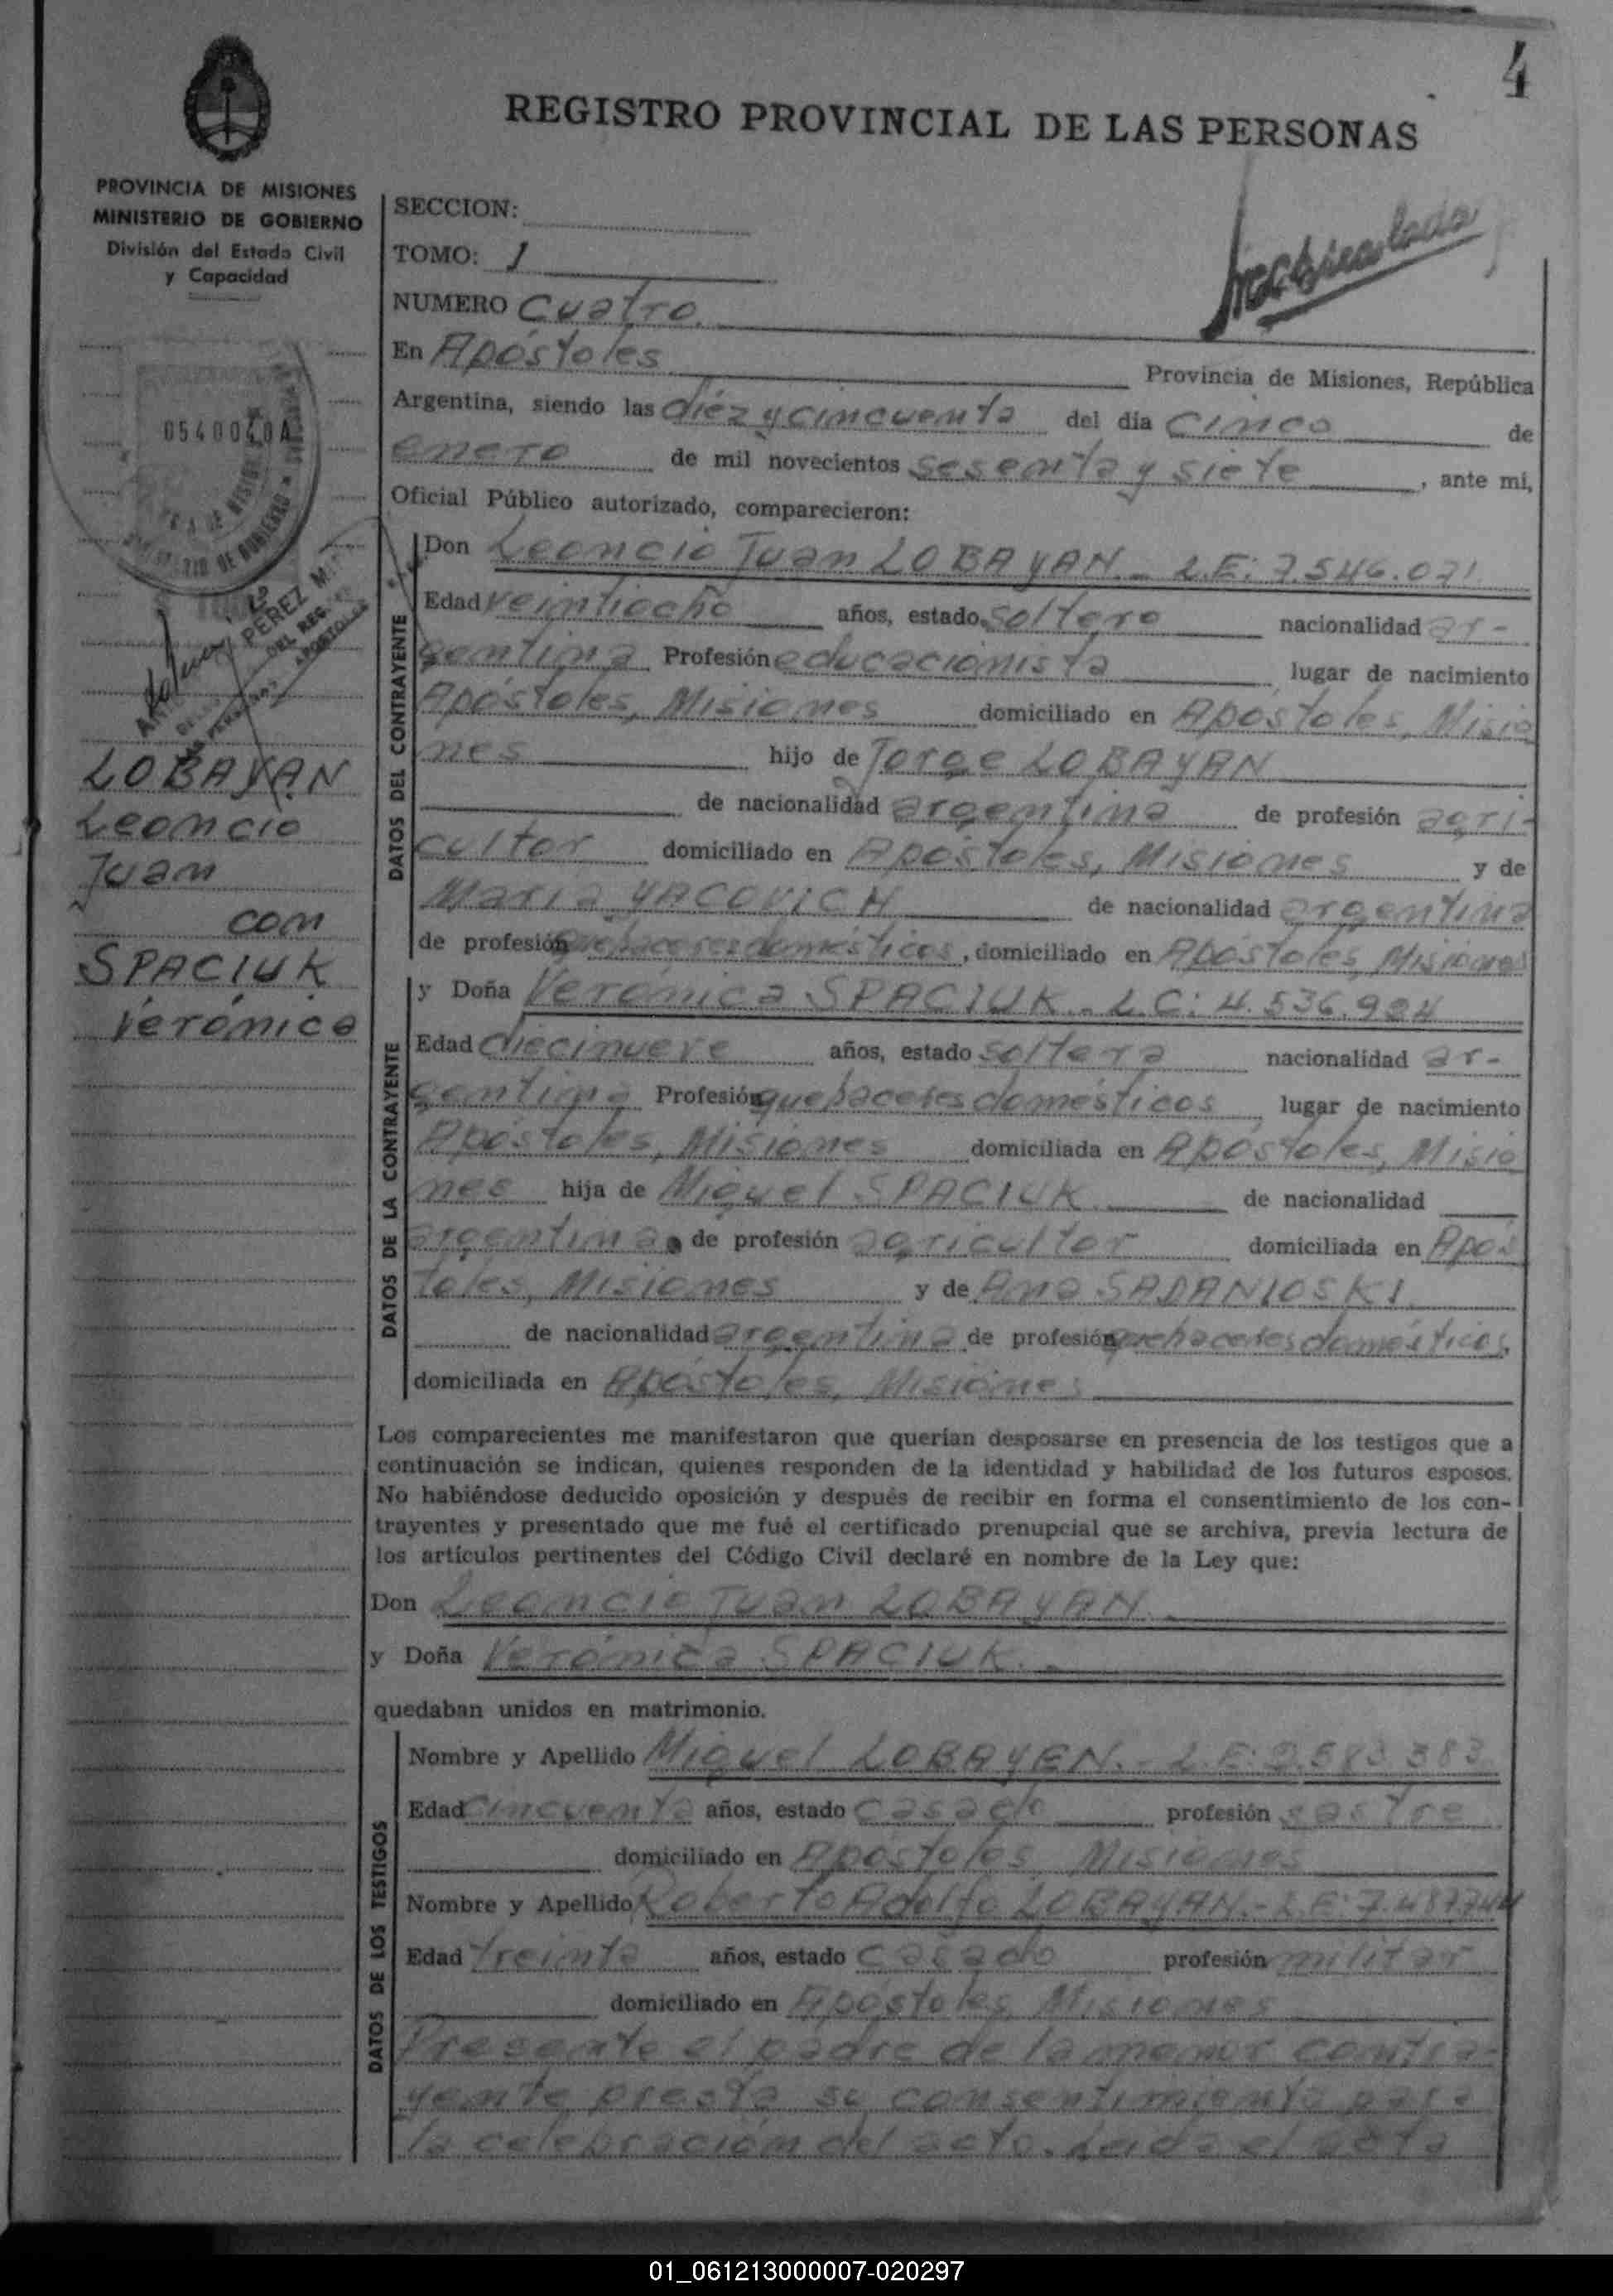 4
REGISTRO PROVINCIAL DE LAS PERSONAS
PROVINCIA DE MISIONES
MINISTERIO DE GOBIERNO
División del Estado Civil
y Capacidad
SECCION:
TOMO: 1
NUMERO Cuatro.
En Apóstoles
Provincia de Misiones, República
Argentina, siendo las diéz y cincuenta del dia cinco de
enero de mil novecientos sesenta y siete, ante mi,
Oficial Público autorizado, comparecieron:
0540040A
PEREZ
DEL REG.
APOSTOLES
LOBAYAN
Leoncio
Juan
con
SPACIUK
Verónica
DATOS DEL CONTRAYENTE
Don Leoncio Juan LOBAYAN.- L.E: 7.546.071
Edad veintiocho años, estado soltero nacionalidad ar-
gentina Profesión educacionista lugar de nacimiento
Apóstoles, Misiones domiciliado en Apóstoles, Misio
nes hijo de Jorge LOBAYAN
de nacionalidad argentina de profesión agri-
cultor domiciliado en Apóstoles, Misiones y de
María YACOVICH de nacionalidad argentina
de profesión quehaceres domésticos, domiciliado en Apóstoles, Misiones
DATOS DE LA CONTRAYENTE
y Doña Verónica SPACIUK.- L.C: 4.536.924
Edad diecinueve años, estado soltera nacionalidad ar-
gentina Profesión quehaceres domésticos, lugar de nacimiento
Apóstoles, Misiones domiciliada en Apóstoles, Misio
nes hija de Miguel SPACIUK de nacionalidad
argentina de profesión agricultor domiciliada en Após
toles, Misiones y de Ana SADANIOSKI
de nacionalidad argentina de profesión quehaceres domésticos,
domiciliada en Apóstoles, Misiones
Los comparecientes me manifestaron que querían desposarse en presencia de los testigos que a
continuación se indican, quienes responden de la identidad y habilidad de los futuros esposos.
No habiéndose deducido oposición y después de recibir en forma el consentimiento de los con-
trayentes y presentado que me fué el certificado prenupcial que se archiva, previa lectura de
los artículos pertinentes del Código Civil declaré en nombre de la Ley que:
Don Leoncio Juan LOBAYAN.
y Doña Verónica SPACIUK.
quedaban unidos en matrimonio.
DATOS DE LOS TESTIGOS
Nombre y Apellido Miguel LOBAYEN.- L.E: 2.583.383
Edad cincuenta años, estado casado profesión sastre
domiciliado en Apóstoles, Misiones
Nombre y Apellido Roberto Adolfo LOBAYAN.- L.E: 7.487.744
Edad treinta años, estado casado profesión militar
domiciliado en Apóstoles, Misiones
Presente el padre de la menor contra-
yente presta su consentimiento para
la celebración del acto. Leida el acta
01_061213000007-020297